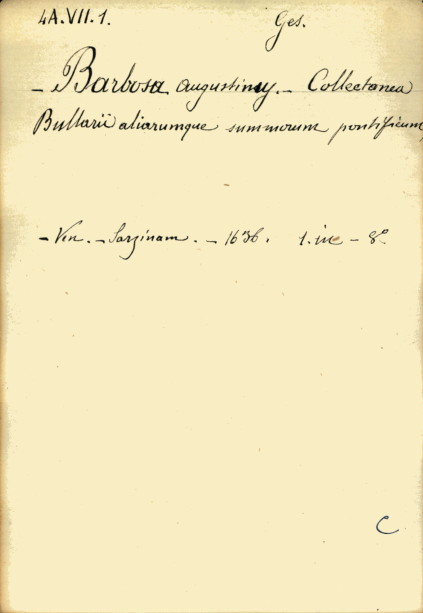 4A.VII.1. Ges.
- Barbosa Augustinus. - Collectanea
Bullarii aliarumque summorum pontificum
- Ven. - Sarzinam. - 1636. 1. in - 8º
C